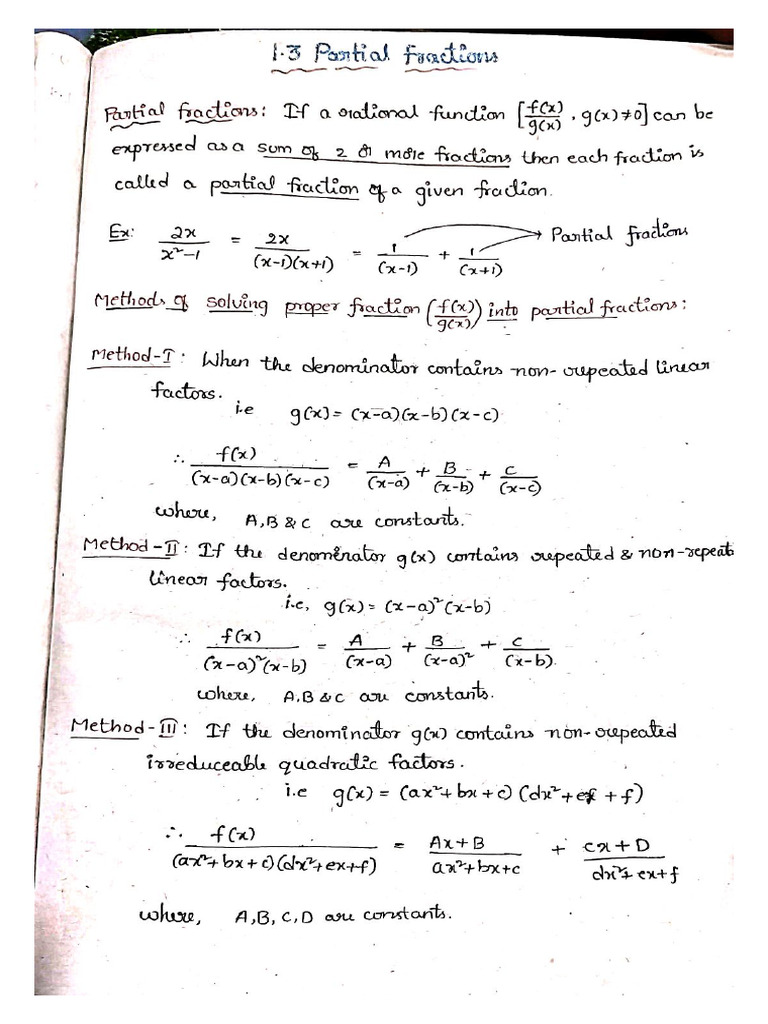 1.3 Partial fractions
Partial fractions: If a rational function [f(x)/g(x), g(x)≠0] can be
expressed as a sum of 2 or more fractions then each fraction is
called a partial fraction of a given fraction.
Ex: 2x/(x²-1) = 2x/((x-1)(x+1)) = 1/(x-1) + 1/(x+1) → Partial fractions
Methods of solving proper fraction (f(x)/g(x)) into partial fractions:
Method-I: When the denominator contains non-repeated linear
factors.
i.e g(x) = (x-a)(x-b)(x-c)
∴ f(x)/((x-a)(x-b)(x-c)) = A/(x-a) + B/(x-b) + C/(x-c)
where, A,B & C are constants.
Method-II: If the denominator g(x) contains repeated & non-repeat
linear factors.
i.e, g(x) = (x-a)²(x-b)
∴ f(x)/((x-a)²(x-b)) = A/(x-a) + B/(x-a)² + C/(x-b).
where, A,B & C are constants.
Method-III: If the denominator g(x) contains non-repeated
irreduceable quadratic factors.
i.e g(x) = (ax²+bx+c)(dx²+ex+f)
∴ f(x)/((ax²+bx+c)(dx²+ex+f)) = (Ax+B)/(ax²+bx+c) + (cx+D)/(dx²+ex+f)
where, A,B,C,D are constants.